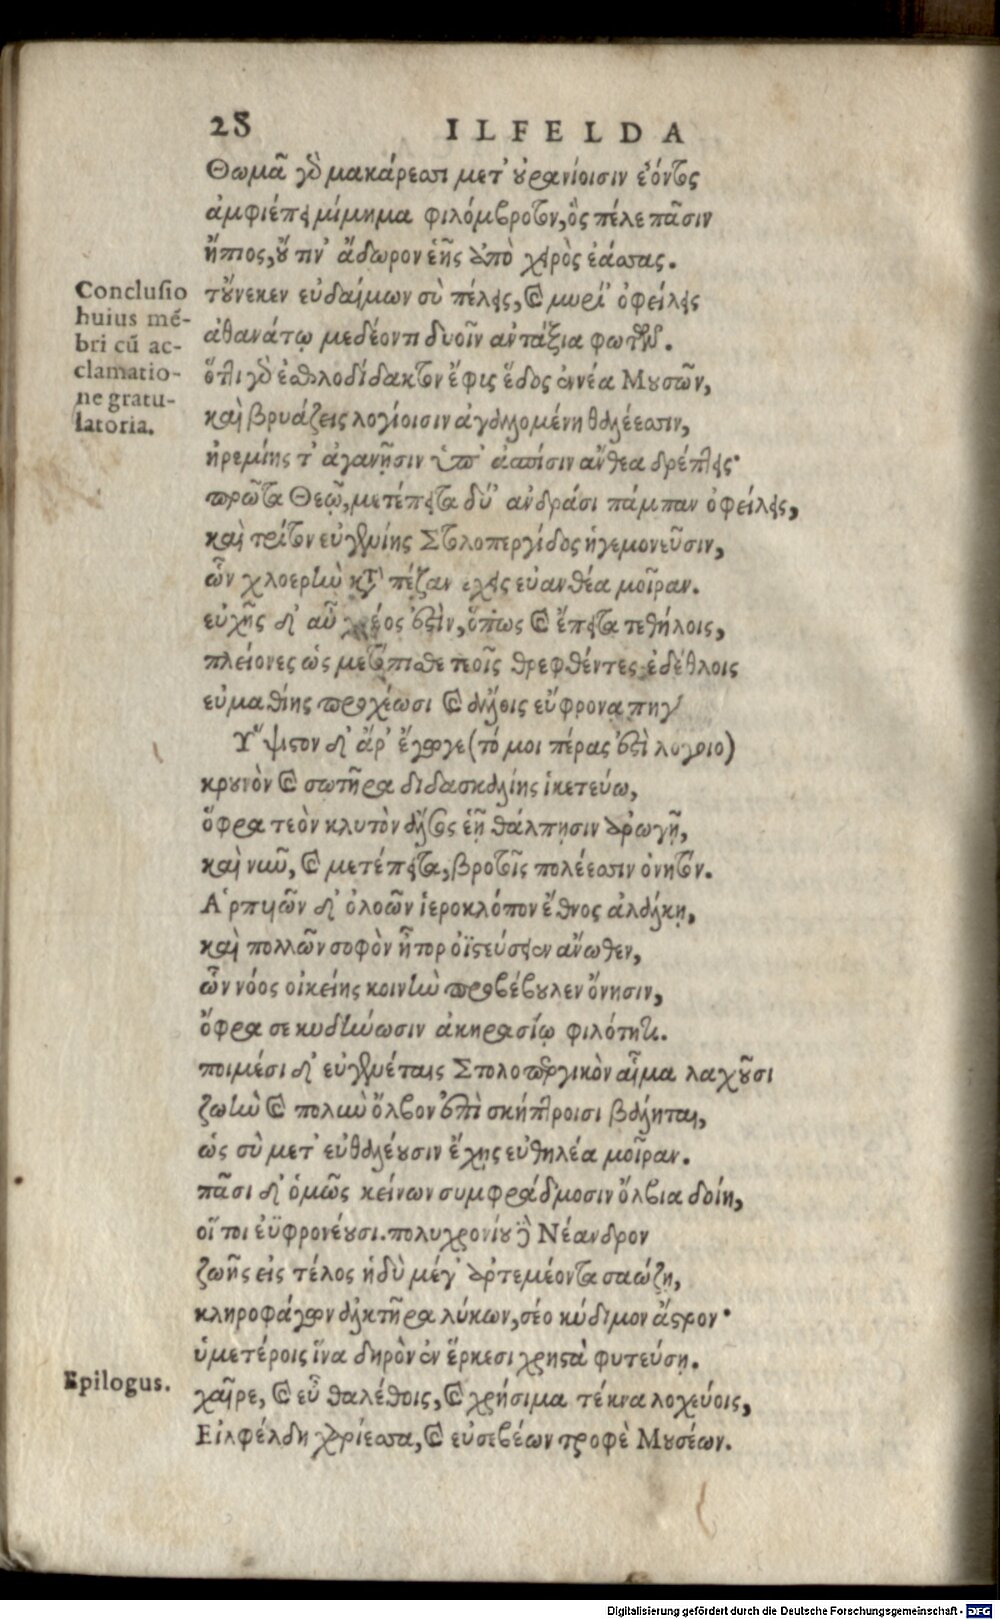 28 ILFELDA
Θωμᾶ γὸ μακάρεσσι μετ' οὐρανίοισιν ἐόντος
ἀμφιέπει μίμημα φιλόμβροτον, ὃς πέλε πᾶσιν
ἤπιος, οὔ τιν' ἄδωρον ἑῆς ἀπὸ χειρὸς ἐάσσας.
Conclusio
huius mé-
bri cū ac-
clamatio-
ne gratu-
latoria.
τοὔνεκεν εὐδαίμων σὺ πέλεις, καὶ μυρί' ὀφείλεις
ἀθανάτῳ μεδέοντι δυοῖν ἀντάξια φωτῶν.
ὅττι γὸ ἐσθλοδίδακτον ἔφυς ἕδος ἐννέα Μουσῶν,
καὶ βρυάζεις λογίοισιν ἀγαλλομένη θαλέεσσιν,
ἠρεμίης τ' ἀγανῇσιν ὑπ' ἀσπίσιν ἄνθεα δρέπτεις·
πρῶτα Θεῷ, μετέπειτα δύ' ἀνδράσι πάμπαν ὀφείλεις,
καὶ τρίτον εὐγενίης Στολοπεργίδος ἡγεμονεῦσιν,
ὧν χλοερὴν κατὰ πέζαν ἔχεις εὐανθέα μοῖραν.
εὐχῆς δ' αὖ χρέος ἐστὶν, ὅπως καὶ ἔπειτα τεθήλοις,
πλείονες ὡς μετόπισθε τεοῖς θρεφθέντες ἐδέθλοις
εὐμαθίης προχέωσι καὶ
Ὕψιστον δ' ἄρ' ἔγωγε (τό μοι πέρας ἐστὶ λόγοιο)
κρουνὸν καὶ σωτῆρα διδασκαλίης ἱκετεύω,
ὄφρα τεὸν κλυτὸν ἄλσος ἑῇ θάλπησιν ἀρωγῇ,
καὶ νῦν, καὶ μετέπειτα, βροτοῖς πολέεσσιν ὀνητόν.
Ἁρπυιῶν δ' ὀλοῶν ἱεροκλόπον ἔθνος ἀλάλκῃ,
καὶ πολλῶν σοφὸν ἦτορ ὀϊστεύσειεν ἄνωθεν,
ὧν νόος οἰκείης κοινὴν προβέβουλεν ὄνησιν,
ὄφρα σε κυδήνωσιν ἀκηρασίῳ φιλότητι.
ποιμέσι δ' εὐγενέταις Στολοπεργικὸν αἷμα λαχοῦσι
ζωὴν καὶ πολὺν ὄλβον ἐπὶ σκήπτροισι βάληται,
ὡς σὺ μετ' εὐθαλέουσιν ἔχῃς εὐθηλέα μοῖραν.
πᾶσι δ' ὁμῶς κείνων συμφράδμοσιν ὄλβια δοίη,
οἵ τοι ἐϋφρονέουσι. πολυχρονίου δὲ Νέανδρον
ζωῆς εἰς τέλος ἡδὺ μέγ' ἀρτεμέοντα σαώζῃ,
κληροφάγων ἀλκτῆρα λύκων, σέο κύδιμον ἄστρον·
ὑμετέροις ἵνα δηρὸν ἐν ἕρκεσι χρηστὰ φυτεύσῃ.
Epilogus.
χαῖρε, καὶ εὖ θαλέθοις, καὶ χρήσιμα τέκνα λοχεύοις,
Εἰλφέλδη χαρίεσσα, καὶ εὐσεβέων τροφὲ Μουσέων.
Digitalisierung gefördert durch die Deutsche Forschungsgemeinschaft - DFG